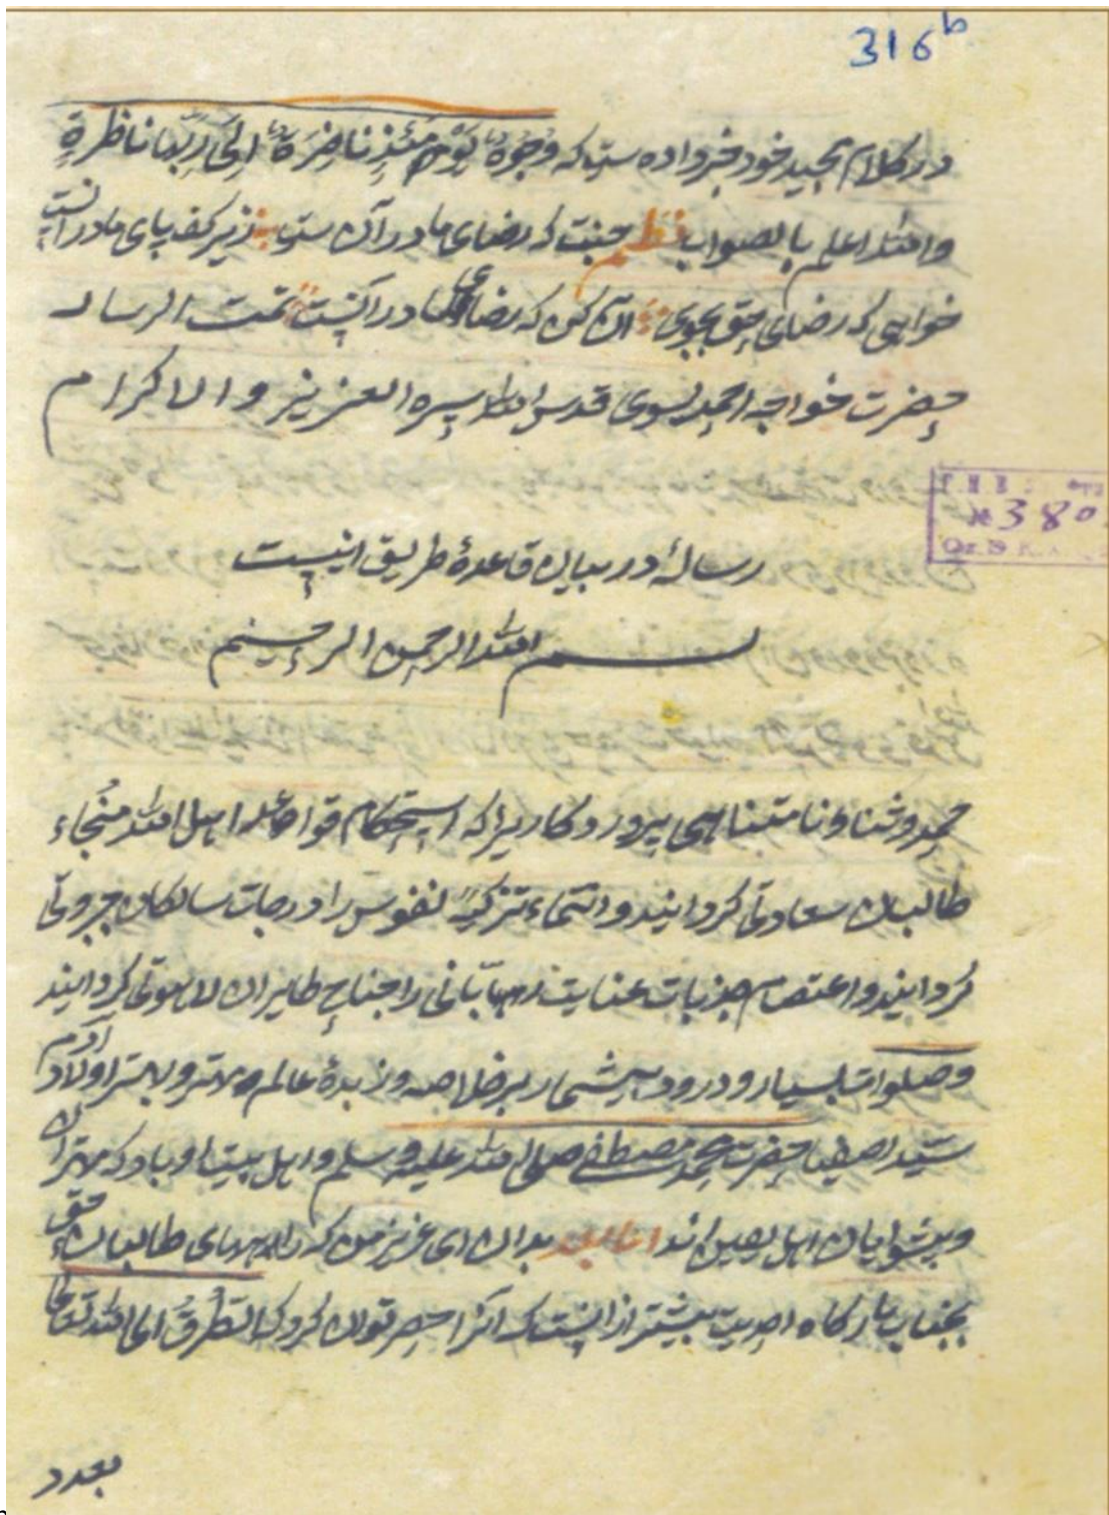 316b
در کلام مجید خود خبر داده ست که وُجُوهٌ یَوْمَئِذٍ نَاضِرَةٌ اِلَی رَبِّهَا نَاظِرَةٌ
والله اعلم بالصواب نظم جنت که رضای ما در آن ست زیر کف پای مادرانست
خواهی که رضای حق بجوی آن کن که رضای مادر آنست تمت الرساله
حضرت خواجه احمد یسوی قدس الله سره العزیز والاکرام
№ 380
رسالهٔ در بیان قاعدهٔ طریق اینست
بسم الله الرحمن الرحیم
حمد و ثناء نامتناهی پروردکاریرا که استحکام قواعد اهل الله مَنْجاء
طالبان سعادتی کردانید و انتماء تزکیهٔ نفوس را درجات سالکان جبروتی
کردانید و اعتصام جذبات عنایت را جناح طایران لاهوتی کردانید
وصلوات بسیار و درود بیشمار بر خلاصه و زبدهٔ عالم و مهتر و بهتر اولاد آدم
سیّد اصفیا حضرت محمد مصطفی صلی الله علیه و سلم و اهل بیت او باد که مهتران
و پیشوایان اهل یقین اند اما بعد بدان ای عزیز من که راه های طالبان حق
بجناب بارکاه احدیت بیشتر از انست که آنرا حصر توان کرد که الطُّرُقُ الی الله تعالی
بعدد